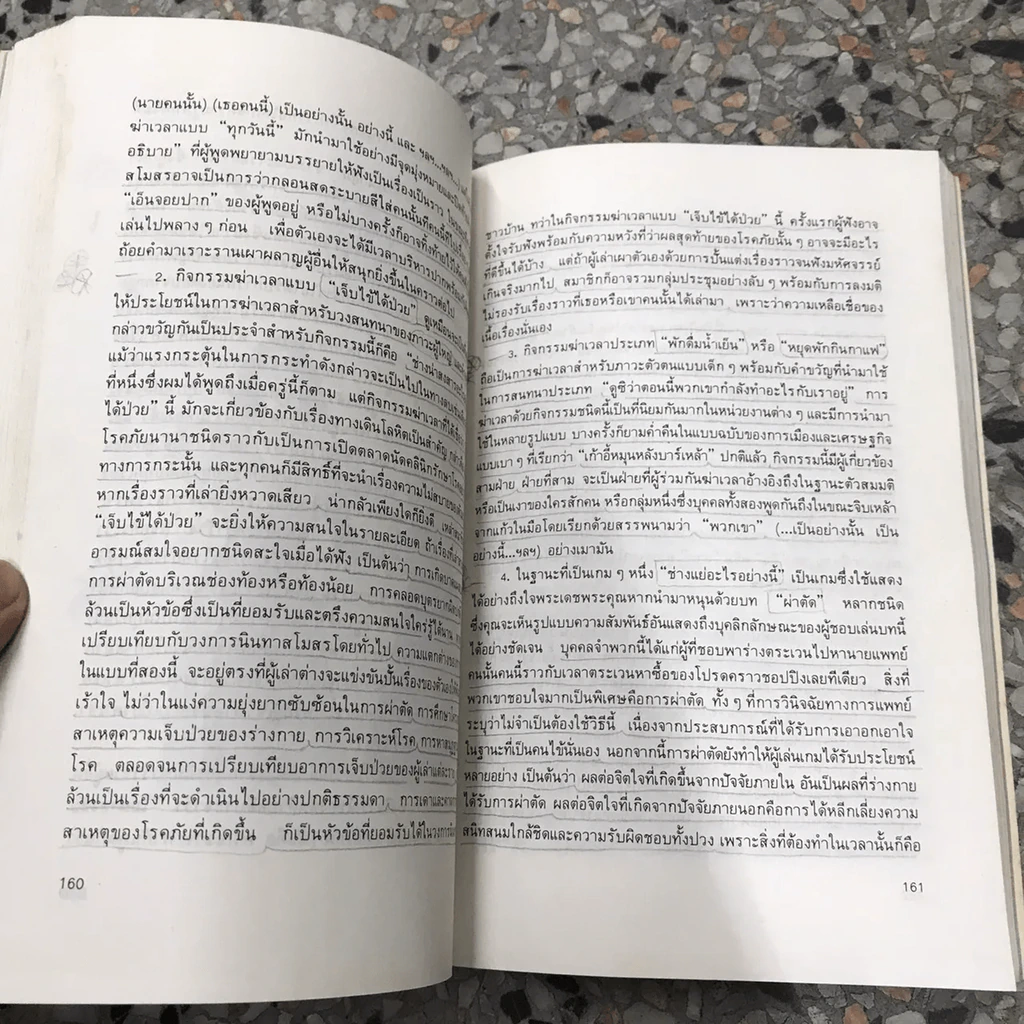 (นายคนนั้น) (เธอคนนี้) เป็นอย่างนั้น อย่างนี้ และ ฯลฯ...ฯลฯ...)
ฆ่าเวลาแบบ “ทุกวันนี้” มักนำมาใช้อย่างมีจุดมุ่งหมายและ
อธิบาย” ที่ผู้พูดพยายามบรรยายให้ฟังเป็นเรื่องเป็นราว
สโมสรอาจเป็นการว่ากลอนสดระบายสีใส่คนนั้นทีคนนี้ที
“เอ็นจอยปาก” ของผู้พูดอยู่ หรือไม่บางครั้งก็อาจทิ้งท้ายไว้
เล่นไปพลาง ๆ ก่อน เพื่อตัวเองจะได้มีเวลาบริหารปาก
ถ้อยคำมาเราะรานเผาผลาญผู้อื่นให้สนุกยิ่งขึ้นในคราวต่อไป
2. กิจกรรมฆ่าเวลาแบบ “เจ็บไข้ได้ป่วย” ดูเหมือน
ให้ประโยชน์ในการฆ่าเวลาสำหรับวงสนทนาของภาวะผู้ใหญ่
กล่าวขวัญกันเป็นประจำสำหรับกิจกรรมนี้ก็คือ
แม้ว่าแรงกระตุ้นในการกระทำดังกล่าวจะเป็นไปในทาง
ที่หนึ่งซึ่งผมได้พูดถึงเมื่อครู่นี้ก็ตาม แต่กิจกรรมฆ่าเวลา
ได้ป่วย” นี้ มักจะเกี่ยวข้องกับเรื่องทางเดินโลหิตเป็นสำคัญ
โรคภัยนานาชนิดราวกับเป็นการเปิดตลาดนัดคลินิกรักษา
ทางการกระนั้น และทุกคนก็มีสิทธิ์ที่จะนำเรื่องความไม่สบาย
หากเรื่องราวที่เล่ายิ่งหวาดเสียว น่ากลัวเพียงใดก็ยิ่งดี
“เจ็บไข้ได้ป่วย” จะยิ่งให้ความสนใจในรายละเอียด
อารมณ์สมใจอยากชนิดสะใจเมื่อได้ฟัง เป็นต้นว่า
การผ่าตัดบริเวณช่องท้องหรือท้องน้อย การคลอดบุตร
ล้วนเป็นหัวข้อซึ่งเป็นที่ยอมรับและตรึงความสนใจใคร่รู้ได้นาน
เปรียบเทียบกับวงการนินทาสโมสรโดยทั่วไป ความแตกต่าง
ในแบบที่สองนี้ จะอยู่ตรงที่ผู้เล่าต่างจะแข่งขันปั้นเรื่องของตัวเอง
เร้าใจ ไม่ว่าในแง่ความยุ่งยากซับซ้อนในการผ่าตัด การศึกษา
สาเหตุความเจ็บป่วยของร่างกาย การวิเคราะห์โรค
โรค ตลอดจนการเปรียบเทียบอาการเจ็บป่วยของผู้เล่าแต่ละราย
ล้วนเป็นเรื่องที่จะดำเนินไปอย่างปกติธรรมดา การเดา
สาเหตุของโรคภัยที่เกิดขึ้น ก็เป็นหัวข้อที่ยอมรับได้ในวงการ
160
ชาวบ้าน ทว่าในกิจกรรมฆ่าเวลาแบบ “เจ็บไข้ได้ป่วย” นี้ ครั้งแรกผู้ฟังอาจ
ตั้งใจรับฟังพร้อมกับความหวังที่ว่าผลสุดท้ายของโรคภัยนั้น ๆ อาจจะมีอะไร
ที่ดีขึ้นได้บ้าง แต่ถ้าผู้เล่าเผาตัวเองด้วยการปั้นแต่งเรื่องราวจนฟังมหัศจรรย์
เกินจริงมากไป สมาชิกก็อาจรวมกลุ่มประชุมอย่างลับ ๆ พร้อมกับการลงมติ
ไม่รองรับเรื่องราวที่เธอหรือเขาคนนั้นได้เล่ามา เพราะว่าความเหลือเชื่อของ
เนื้อเรื่องนั่นเอง
3. กิจกรรมฆ่าเวลาประเภท “พักดื่มน้ำเย็น” หรือ “หยุดพักกินกาแฟ”
ถือเป็นการฆ่าเวลาสำหรับภาวะตัวตนแบบเด็ก ๆ พร้อมกับคำขวัญที่นำมาใช้
ในการสนทนาประเภท “ดูซิว่าตอนนี้พวกเขากำลังทำอะไรกับเราอยู่” การ
ฆ่าเวลาด้วยกิจกรรมชนิดนี้เป็นที่นิยมกันมากในหน่วยงานต่าง ๆ และมีการนำมา
ใช้ในหลายรูปแบบ บางครั้งก็ยามค่ำคืนในแบบฉบับของการเมืองและเศรษฐกิจ
แบบเบา ๆ ที่เรียกว่า “เก้าอี้หมุนหลังบาร์เหล้า” ปกติแล้ว กิจกรรมนี้มีผู้เกี่ยวข้อง
สามฝ่าย ฝ่ายที่สาม จะเป็นฝ่ายที่ผู้ร่วมกันฆ่าเวลาอ้างอิงถึงในฐานะตัวสมมติ
หรือเป็นเงาของใครสักคน หรือกลุ่มหนึ่งซึ่งบุคคลทั้งสองพูดกันถึงในขณะจิบเหล้า
จากแก้วในมือโดยเรียกด้วยสรรพนามว่า “พวกเขา” (...เป็นอย่างนั้น เป็น
อย่างนี้...ฯลฯ) อย่างเมามัน
4. ในฐานะที่เป็นเกม ๆ หนึ่ง “ช่างแย่อะไรอย่างนี้” เป็นเกมซึ่งใช้แสดง
ได้อย่างถึงใจพระเดชพระคุณหากนำมาหนุนด้วยบท “ผ่าตัด” หลากชนิด
ซึ่งคุณจะเห็นรูปแบบความสัมพันธ์อันแสดงถึงบุคลิกลักษณะของผู้ชอบเล่นบทนี้
ได้อย่างชัดเจน บุคคลจำพวกนี้ได้แก่ผู้ที่ชอบพาร่างตระเวนไปหานายแพทย์
คนนั้นคนนี้ราวกับเวลาตระเวนหาซื้อของโปรดคราวชอปปิงเลยทีเดียว สิ่งที่
พวกเขาชอบใจมากเป็นพิเศษคือการผ่าตัด ทั้ง ๆ ที่การวินิจฉัยทางการแพทย์
ระบุว่าไม่จำเป็นต้องใช้วิธีนี้ เนื่องจากประสบการณ์ที่ได้รับการเอาอกเอาใจ
ในฐานะที่เป็นคนไข้นั่นเอง นอกจากนี้การผ่าตัดยังทำให้ผู้เล่นเกมได้รับประโยชน์
หลายอย่าง เป็นต้นว่า ผลต่อจิตใจที่เกิดขึ้นจากปัจจัยภายใน อันเป็นผลที่ร่างกาย
ได้รับการผ่าตัด ผลต่อจิตใจที่เกิดจากปัจจัยภายนอกคือการได้หลีกเลี่ยงความ
สนิทสนมใกล้ชิดและความรับผิดชอบทั้งปวง เพราะสิ่งที่ต้องทำในเวลานั้นก็คือ
161